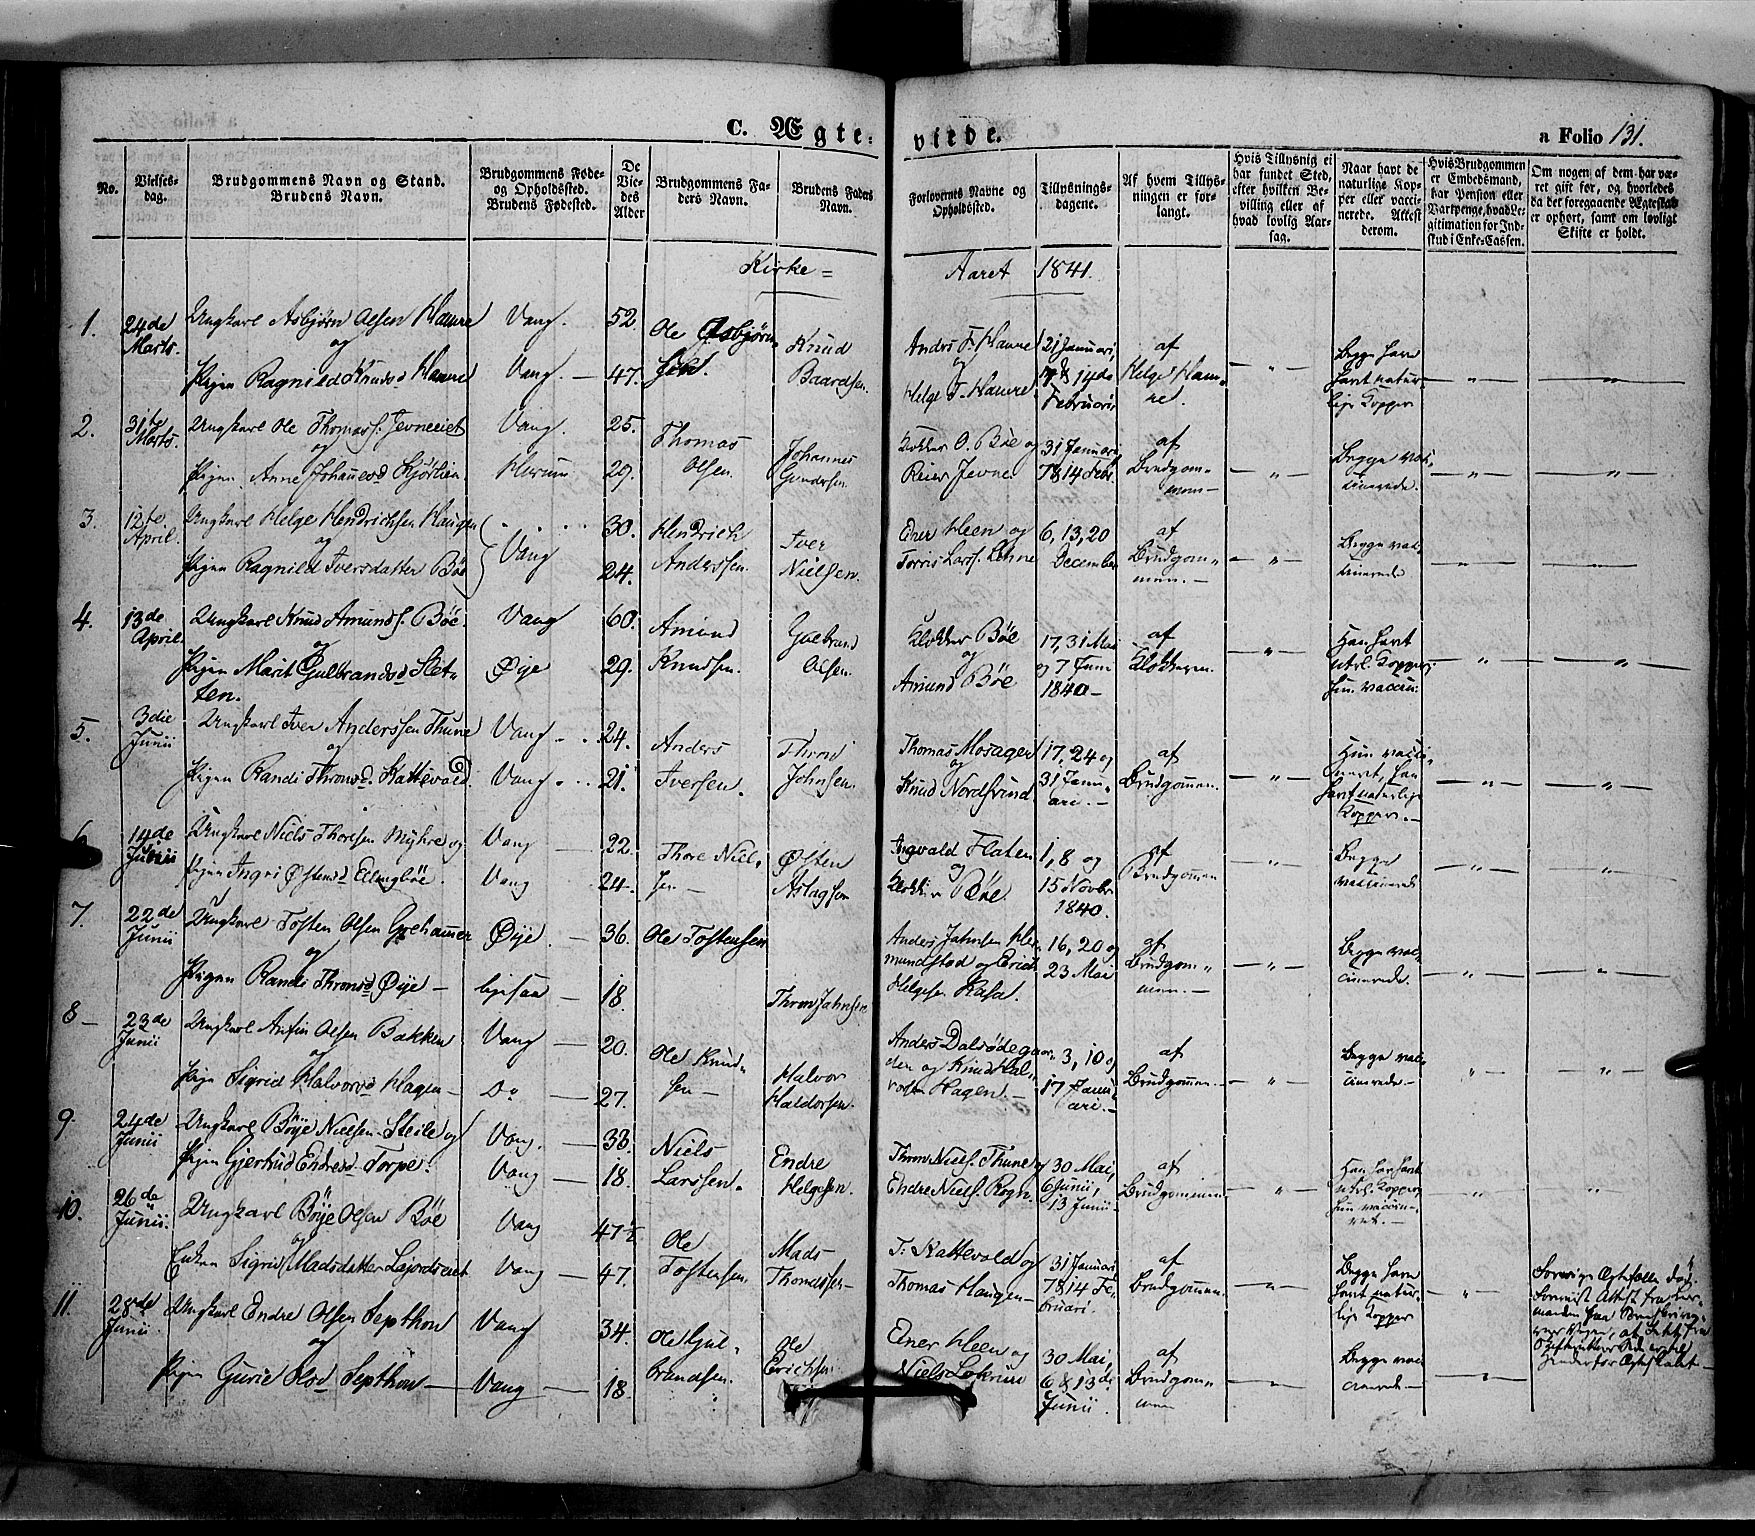 C. Ægte-
viede.
a Folio 131.
No.
Vielses-
dag.
Brudgommens Navn og Stand.
Brudens Navn.
Brudgommens Føde-
og Opholdssted.
Brudens Fødested.
De
Vie-
des
Alder
Brudgommens Fa-
ders Navn.
Brudens Faders
Navn.
Forlovernes Navne og
Opholdssted.
Tillysnings-
dagene.
Af hvem Tillys-
ningen er for-
langt.
Hvis Tillysnig ei
har fundet Sted,
efter hvilken Be-
villing eller af
hvad lovlig Aar-
sag.
Naar havt de
naturlige Kop-
per eller vacci-
nerede. Attest
derom.
Hvis Brudgommen
er Embedsmand,
har Pension eller
Vartpenge, hvad Le-
gitimation for Ind-
skud i Enke-Cassen.
Om nogen af dem har væ-
ret gift før, og hvorledes
da det foregaaende Ægteskab
er ophørt, samt om lovligt
Skifte er holdt.
Kirke =
Aaret 1841.
1.
24de
Marts.
Ungkarl Asbjørn Olsen Hamre
og
Pigen Ragnild Knudsd Hamre
Vang.
Vang.
52.
47.
Ole Asbjørn
sen.
Knud
Baardsen.
Anders T. Hamre
og
Helge T. Hamre
21 Januari,
7 & 14de
Februari,
af
Helge Ham-
re.
Begge have
havt natur-
lige Kopper
2.
31te
Marts.
Ungkarl Ole Thomass. Jevneeiet
og
Pigen Anne Johannesd Kjørlien
Vang.
Hurum
25.
29.
Thomas
Olsen.
Johannes
Gundersen.
Klokker O. Bøe og
Reier Jevne
31 Januari,
7 & 14 Febr.
af
Brudgom-
men
Begge vac-
cinerede.
3.
12te
April.
Ungkarl Helge Hendrichsen Haugen
og
Pigen Ragnild Iversdatter Bøe
Vang
30.
24.
Hendrich
Anderssen.
Iver
Nielsen.
Ener Heen og
Torris Larss. Lehne
6, 13, 20
December
af
Brudgom-
men.
Begge vac-
cinerede
4.
13de
April.
Ungkarl Knud Amunds. Bøe.
og
Pigen Marit Gulbrandsd Slet-
ten.
Vang
Øye
60.
29.
Amund
Knudsen.
Gulbrand
Olsen.
Klokker Bøe
og
Amund Bøe
17, 31 Mai
og 7 Juni
1840
af
Klokkeren
Han havt
ntrl. Kopper,
hun vaccin.
5.
3die
Junii
Ungkarl Iver Anderssen Thune
og
Pigen Randi Thronsd. Kattevold.
Vang
Vang
24.
21.
Anders
Iversen.
Thron
Johnsen.
Thomas Mosagen
og
Knud Nordsvind
17, 24 og
31 Janu-
ari.
af
Brudgommen.
Hun vacci-
neret, han
havt naturlige
Kopper.
6.
14de
Junii
Ungkarl Niels Thoresen Myhre og
Pigen Ingri Østensd Ellingbøe.
Vang
Vang
22.
24.
Thore Niel-
sen
Østen
Aslagsen
Ingvald Flaten
og
Klokker Bøe.
1, 8 og
15 Novbr.
1840.
af
Brudgommen
Begge
vaccinerede
7.
22de
Junii
Ungkarl Tosten Olsen Grehamer
og
Pigen Randi Thronsd Øye
Øye.
ligesaa
36.
18.
Ole Tostensen
Thron Johnsen
Anders Johnsen He-
mundstad og Erich
Helgesen Kasa.
16, 20 og
23 Mai
af
Brudgom-
men.
Begge vac-
cinerede.
8
23de
Junii
Ungkarl Anfin Olsen Bakken
og
Pigen Sigrid Halvorsd Hagen
Vang
Do
20.
27.
Ole Knud-
sen
Halvor
Haldorsen.
Anders Dalsødegaar-
den og Knud Hal-
vorsen Hagen.
3, 10 og
17 Janu-
ari.
af
Brudgommen.
Begge vac-
cinerede
9.
24de
Junii
Ungkarl Bøye Nielsen Steile og
Pigen Gjertrud Endresd Torpe.
Vang.
Vang
38.
18.
Niels
Larssen.
Endre
Helgesen.
Thron Niels. Thune og
Endre Niels. Rogn.
30 Mai,
6 Junii,
13 Junii
af
Brudgommen
Han har havt
ntrl. Kopper
hun vaccine-
ret.
10.
26de
Junii.
Ungkarl Bøye Olsen Bøe
og
Enken Sigrid Madsdatter Lajordseiet
Vang
Vang
47½
47.
Ole
Tostensen.
Mads
Thomassen
T. Kattevold og
Thomas Haugen
31 Januari
7 & 14 Fe-
bruari.
af
Brudgommen.
Begge have
havt natur-
lige Kopper
11.
28de
Junii.
Ungkarl Endre Olsen Septhon
og
Pigen Gurie Olsd Septhon
Vang
Vang
34.
18.
Ole Gul-
brandsen.
Ole
Erichsen
Ener Heen og
Niels Lokrim
30 Mai,
6 & 13de
Junii
af
Brudgom-
men
Begge vac-
cinerede